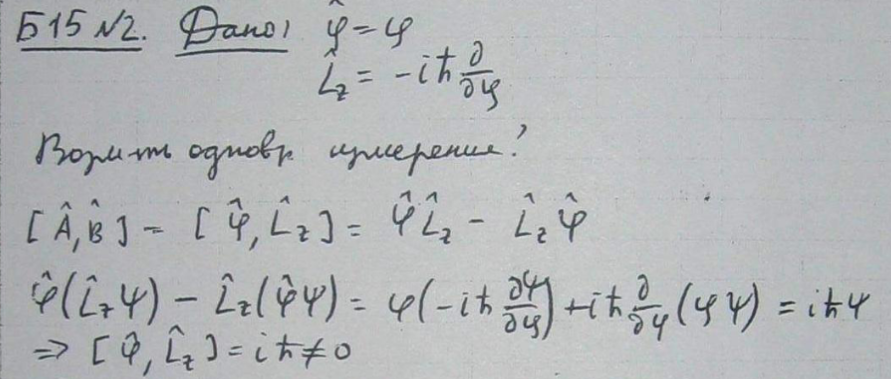 Б15 №2. Дано: φ̂ = φ
L̂_z = -iħ ∂/∂φ
одновр. измерение?
[Â, B̂] = [φ̂, L̂_z] = φ̂L̂_z - L̂_zφ̂
φ̂(L̂_zψ) - L̂_z(φ̂ψ) = φ(-iħ ∂ψ/∂φ) + iħ ∂/∂φ(φψ) = iħψ
⇒ [φ̂, L̂_z] = iħ ≠ 0